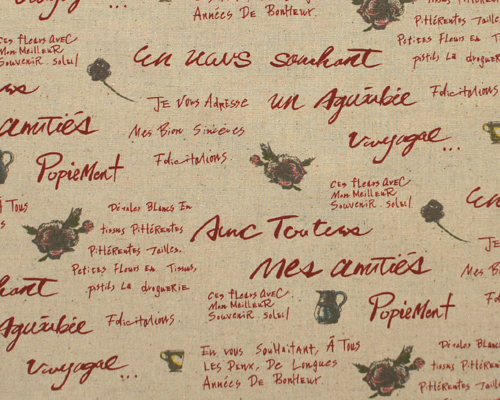 Années De Bonheur.
Ces fleurs avec
Mon Meilleur
Souvenir. soleil
tissus Pittérentes
Pittérentes Tailles.
Petites Fleurs En
pistils La droguerie
En vous souhaitant
Je Vous Adresse un Aguéubée
Félicitations
amitiés
Mes Bien Sincères
Voyagae...
Popiement
Félicitations.
Ces fleurs avec
Mon Meilleur
Souvenir. soleil
À Tous
Dérales Blancs En
tissus Pittérentes
Pittérentes Tailles.
Avec Toutens
Petites Fleurs En Tissus,
pistils La droguerie
Mes amitiés
Ces fleurs avec
Mon Meilleur
Souvenir. soleil
Popiement
Aguéubée
Félicitations
Voyagae...
En vous Souhaitant, À Tous
Les Deux, De Longues
Années De Bonheur.
Dérales Blancs
tissus Pittérentes
Pittérentes Tailles